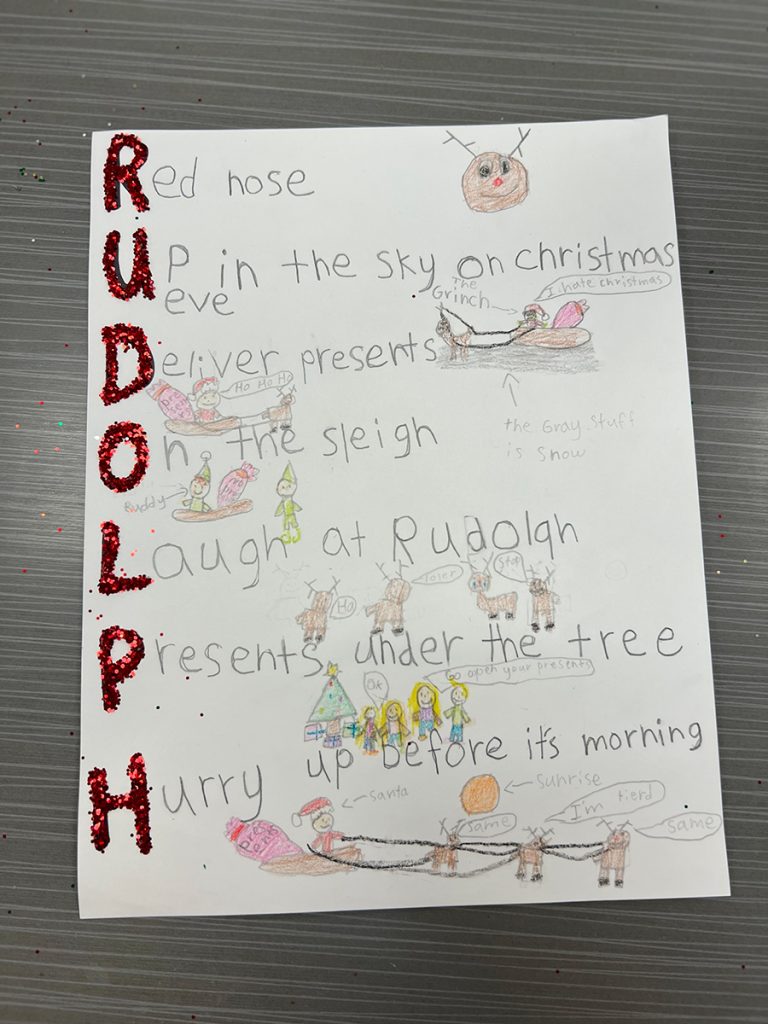 Red nose
Up in the sky on christmas
eve
The
Grinch
I hate christmas
Deliver presents
Ho Ho Ho
presents
the Gray stuff
is snow
On the sleigh
Buddy
Laugh at Rudolph
Ha
loser
Stop
Presents under the tree
Go open your presents
Ok
Hurry up before it's morning
Sunrise
Santa
I'm tierd
same
same
presents